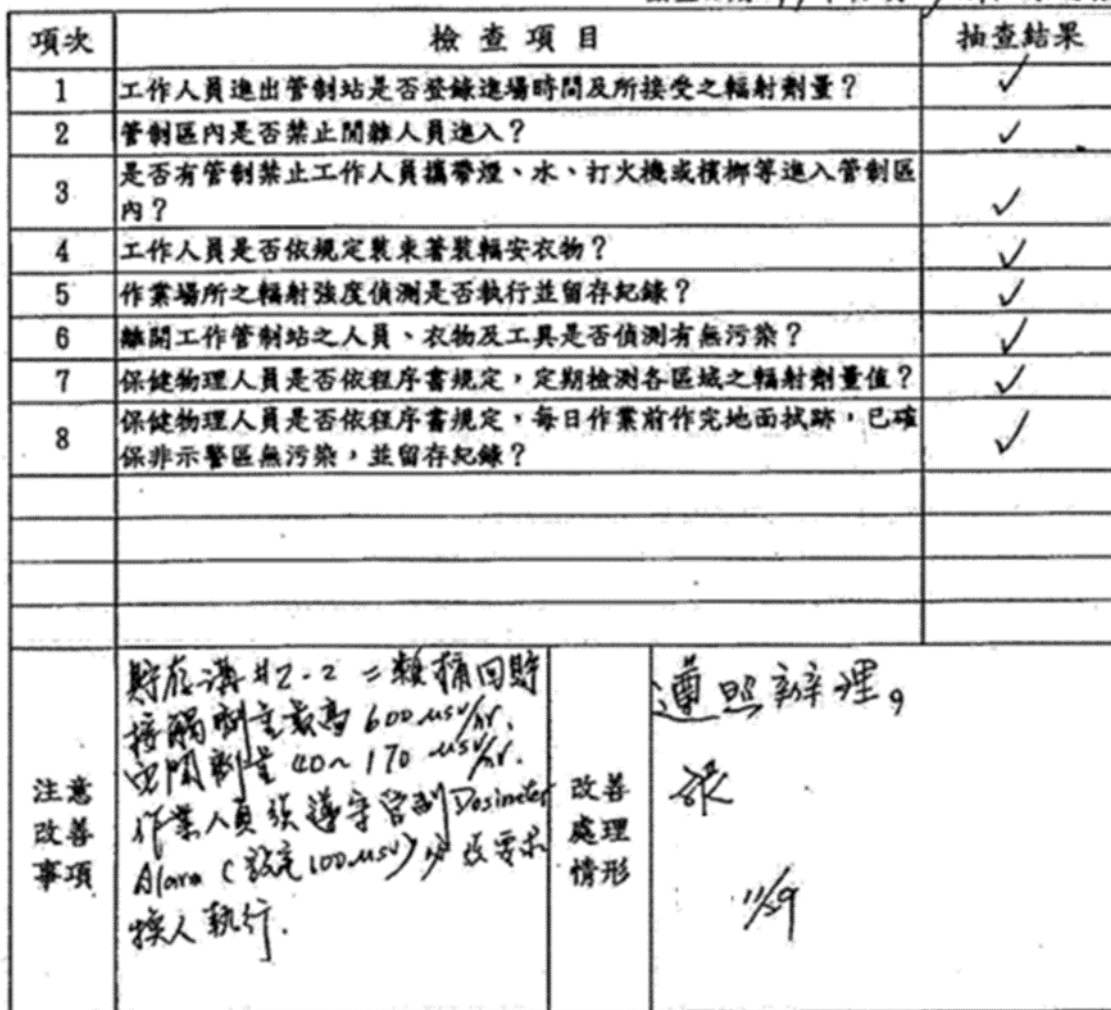 項次 檢查項目 抽查結果
1 工作人員進出管制站是否登錄進場時間及所接受之輻射劑量？ ✓
2 管制區內是否禁止閒雜人員進入？ ✓
3 是否有管制禁止工作人員攜帶煙、水、打火機或檳榔等進入管制區
內？ ✓
4 工作人員是否依規定裝束著裝輻安衣物？ ✓
5 作業場所之輻射強度偵測是否執行並留存紀錄？ ✓
6 離開工作管制站之人員、衣物及工具是否偵測有無污染？ ✓
7 保健物理人員是否依程序書規定，定期檢測各區域之輻射劑量值？ ✓
8 保健物理人員是否依程序書規定，每日作業前作完地面拭跡，已確
保非示警區無污染，並留存紀錄？ ✓
注意
改善
事項
貯存溝#2-2 二類桶回貯
接觸劑量最高 600 usv/hr.
空間劑量 40~170 usv/hr.
作業人員須遵守管制Dosimeter
Alarm (設定100usv)
換人執行.
改善
處理
情形
遵照辦理。
張
11/29